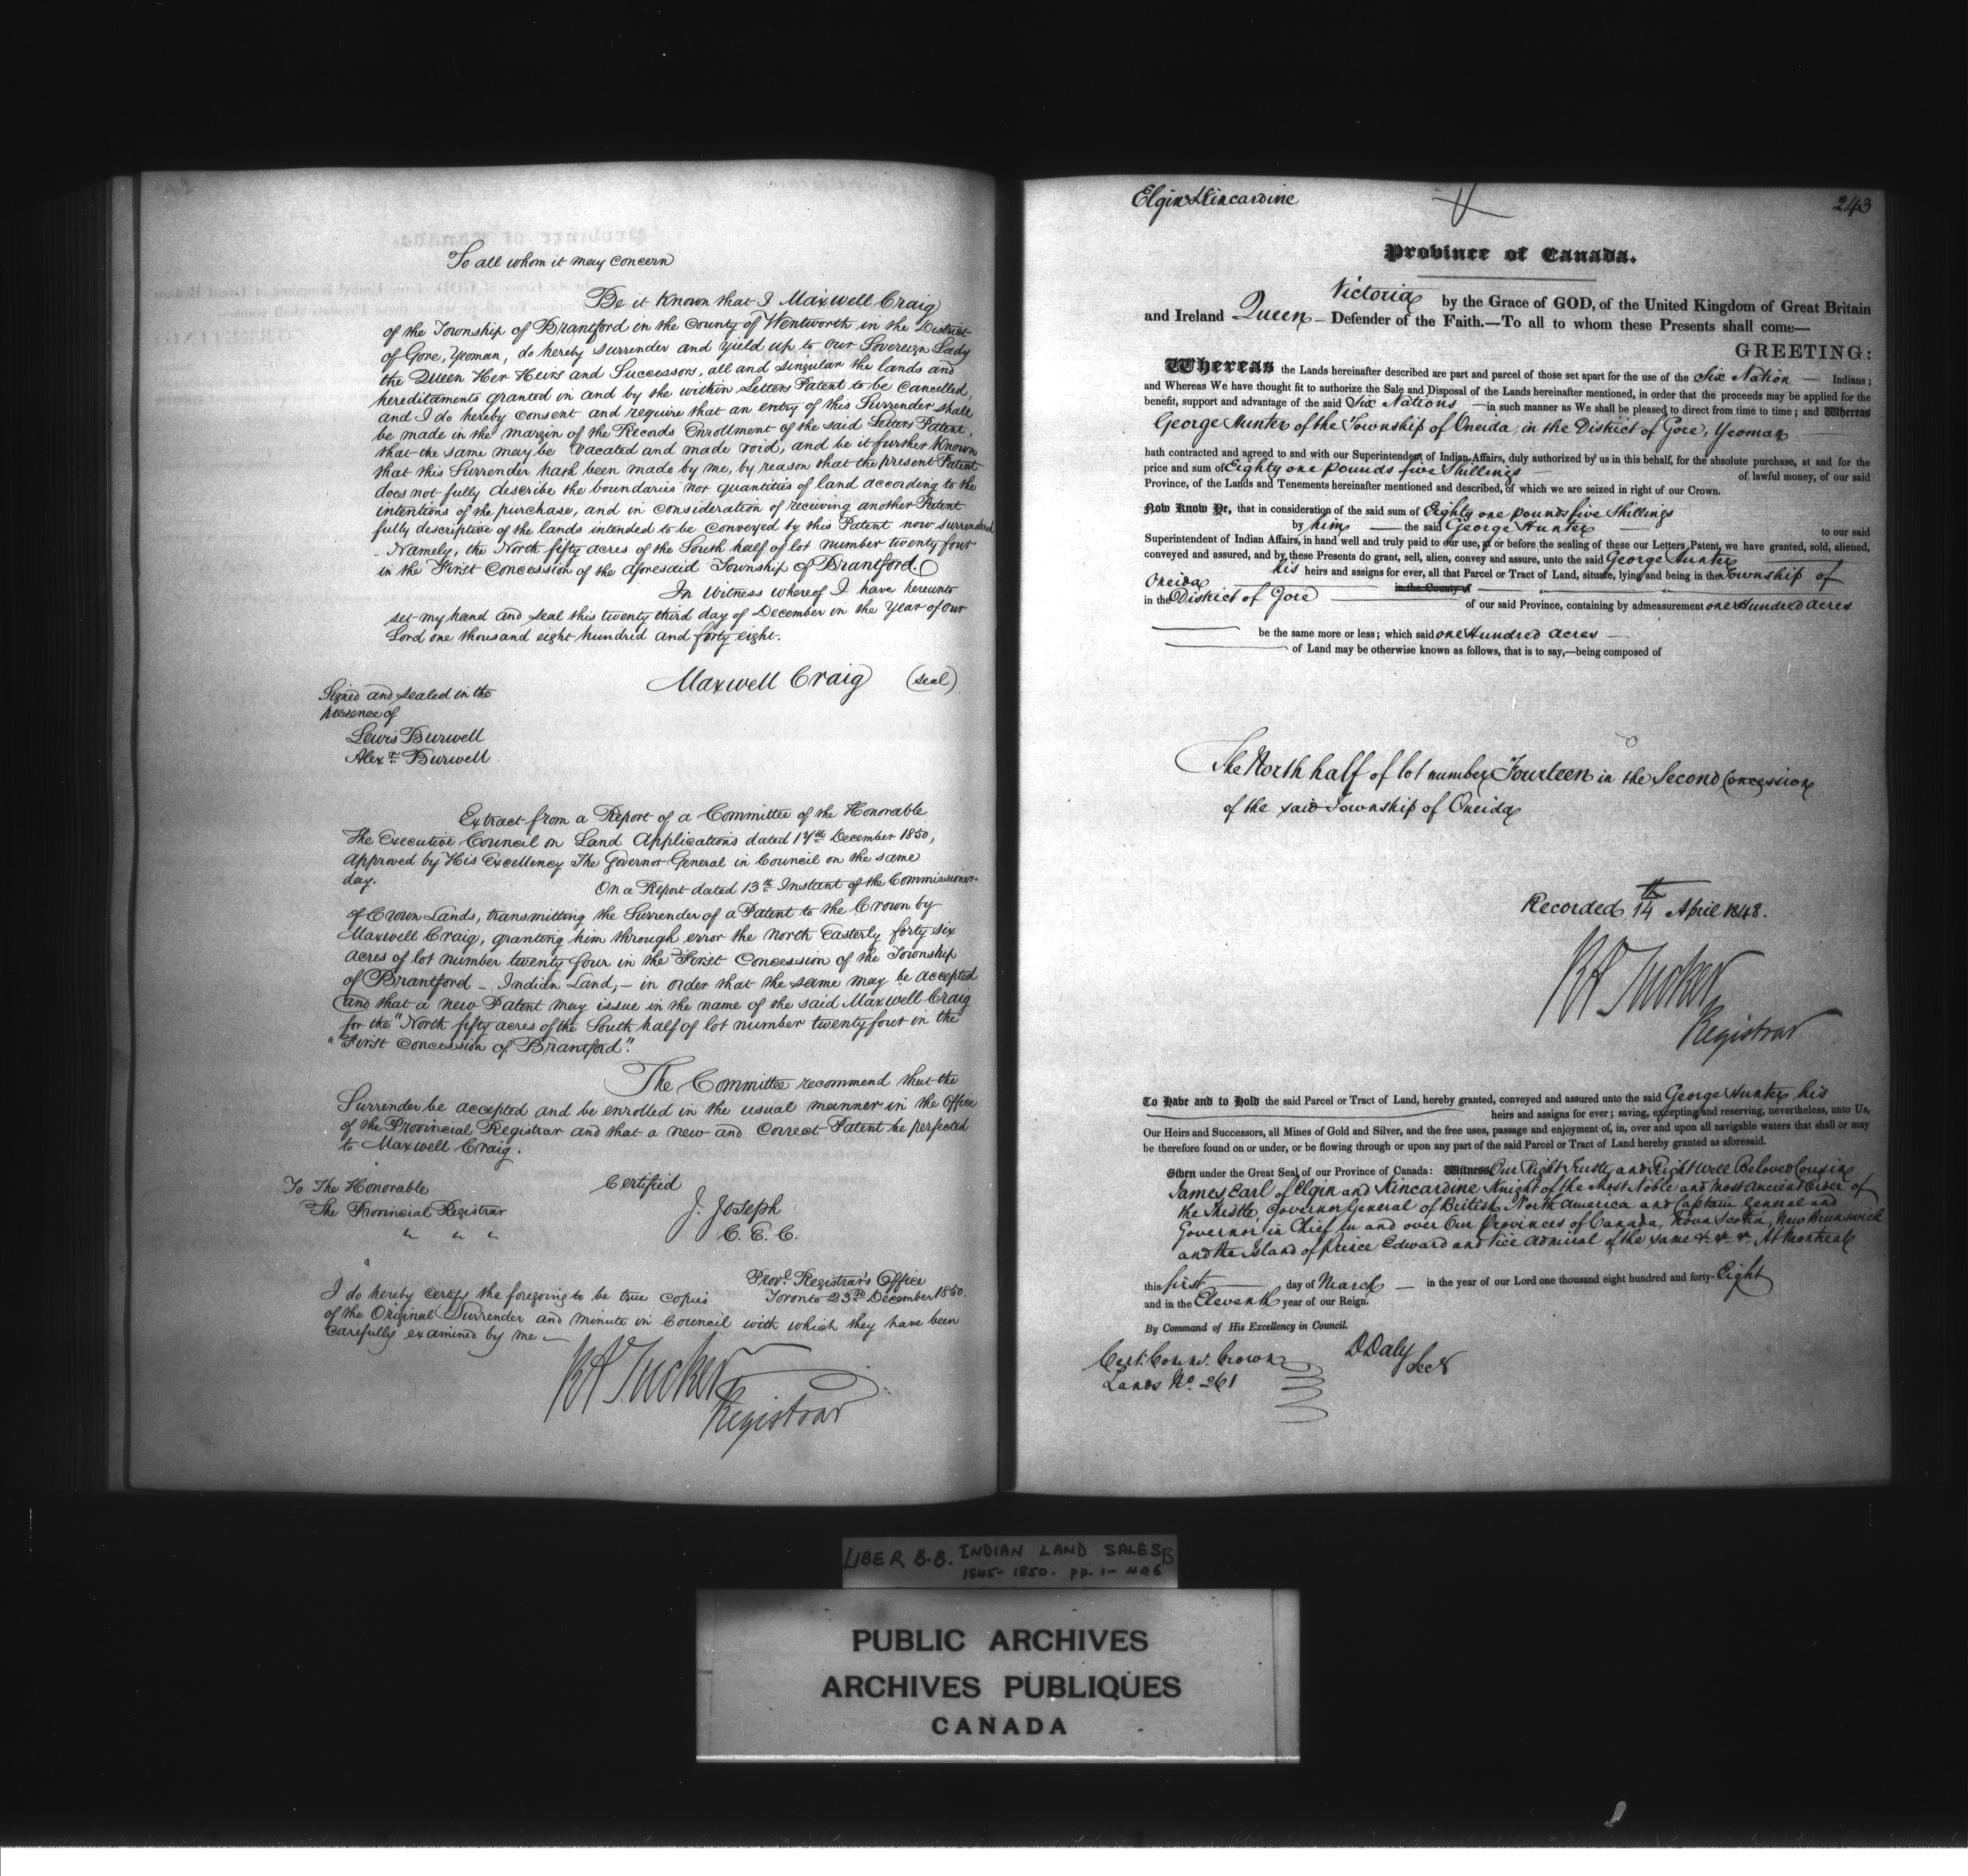 To all whom it may Concern
Be it Known that I Maxwell Craig
of the Township of Brantford in the County of Wentworth in the District
of Gore, Yeoman, do hereby surrender and yield up to our Sovereign Lady
the Queen Her Heirs and Successors, all and singular the lands and
hereditaments granted in and by the within Letters Patent to be Cancelled,
and I do hereby consent and require that an entry of this Surrender shall
be made in the margin of the Records Enrollment of the said Letters Patent,
that the same may be vacated and made void, and be it further Known
that this Surrender hath been made by me, by reason that the present Patent
does not fully describe the boundaries nor quantities of land according to the
intentions of the purchase, and in consideration of receiving another Patent
fully descriptive of the lands intended to be conveyed by this Patent now surrendered
- Namely, the North fifty acres of the South half of lot number twenty four
in the First Concession of the aforesaid Township of Brantford.
In Witness whereof I have hereunto
set my hand and seal this twenty third day of December in the Year of our
Lord one thousand eight hundred and forty eight.
Maxwell Craig (seal)
Signed and sealed in the
presence of
Lewis Burwell
Alexr. Burwell
Extract from a Report of a Committee of the Honorable
The Executive Council on Land Applications dated 17th December 1850,
approved by His Excellency The Governor General in Council on the same
day.
On a Report dated 13th Instant of the Commissioner
of Crown Lands, transmitting the Surrender of a Patent to the Crown by
Maxwell Craig, granting him through error the North Easterly forty six
acres of lot number twenty four in the First Concession of the Township
of Brantford - Indian Land, - in order that the same may be accepted
and that a new Patent may issue in the name of the said Maxwell Craig
for the "North fifty acres of the South half of lot number twenty four in the
"First Concession of Brantford".
The Committee recommend that the
Surrender be accepted and be enrolled in the usual manner in the Office
of the Provincial Registrar and that a new and Correct Patent be perfected
to Maxwell Craig.
To The Honorable
The Provincial Registrar
" " "
Certified
J. Joseph
C. E. C.
Provl. Registrar's Office
Toronto 23rd December 1850.
I do hereby certify the foregoing to be true copies
of the Original Surrender and minute in Council with which they have been
carefully examined by me -
RA Tucker
Registrar
Elgin & Kincardine
243
Province of Canada.
Victoria by the Grace of GOD, of the United Kingdom of Great Britain
and Ireland Queen - Defender of the Faith.—To all to whom these Presents shall come—
GREETING:
Whereas the Lands hereinafter described are part and parcel of those set apart for the use of the Six Nation — Indians;
and Whereas We have thought fit to authorize the Sale and Disposal of the Lands hereinafter mentioned, in order that the proceeds may be applied for the
benefit, support and advantage of the said Six Nations — in such manner as We shall be pleased to direct from time to time; and Whereas
George Hunter of the Township of Oneida, in the District of Gore, Yeoman
hath contracted and agreed to and with our Superintendent of Indian Affairs, duly authorized by us in this behalf, for the absolute purchase, at and for the
price and sum of Eighty one pounds five Shillings — of lawful money, of our said
Province, of the Lands and Tenements hereinafter mentioned and described, of which we are seized in right of our Crown.
Now Know Ye, that in consideration of the said sum of Eighty one pounds five Shillings
by him — the said George Hunter — to our said
Superintendent of Indian Affairs, in hand well and truly paid to our use, at or before the sealing of these our Letters Patent, we have granted, sold, aliened,
conveyed and assured, and by these Presents do grant, sell, alien, convey and assure, unto the said George Hunter
his heirs and assigns for ever, all that Parcel or Tract of Land, situate, lying and being in the Township of
Oneida in the County of
in the District of Gore — of our said Province, containing by admeasurement one Hundred acres
be the same more or less; which said one Hundred acres —
of Land may be otherwise known as follows, that is to say,—being composed of
The North half of lot number Fourteen in the Second Concession
of the said Township of Oneida
Recorded 14th April 1848.
RA Tucker
Registrar
To Have and to Hold the said Parcel or Tract of Land, hereby granted, conveyed and assured unto the said George Hunter his
heirs and assigns for ever; saving, excepting and reserving, nevertheless, unto Us,
Our Heirs and Successors, all Mines of Gold and Silver, and the free uses, passage and enjoyment of, in, over and upon all navigable waters that shall or may
be therefore found on or under, or be flowing through or upon any part of the said Parcel or Tract of Land hereby granted as aforesaid.
Given under the Great Seal of our Province of Canada: Witness Our Right Trusty and Right Well Beloved Cousin
James Earl of Elgin and Kincardine Knight of the Most Noble and most ancient Order of
the Thistle, Governor General of British North America and Captain General and
Governor in Chief in and over Our Provinces of Canada, Nova Scotia, New Brunswick
and the Island of Prince Edward and Vice Admiral of the same &c &c &c. At Montreal
this first — day of March — in the year of our Lord one thousand eight hundred and forty-Eight
and in the Eleventh year of our Reign.
By Command of His Excellency in Council.
D Daly
Secy
Cert: Commr. Crown
Lands No. 261
LIBER B.B. INDIAN LAND SALES B
1845-1850. pp. 1-406
PUBLIC ARCHIVES
ARCHIVES PUBLIQUES
CANADA